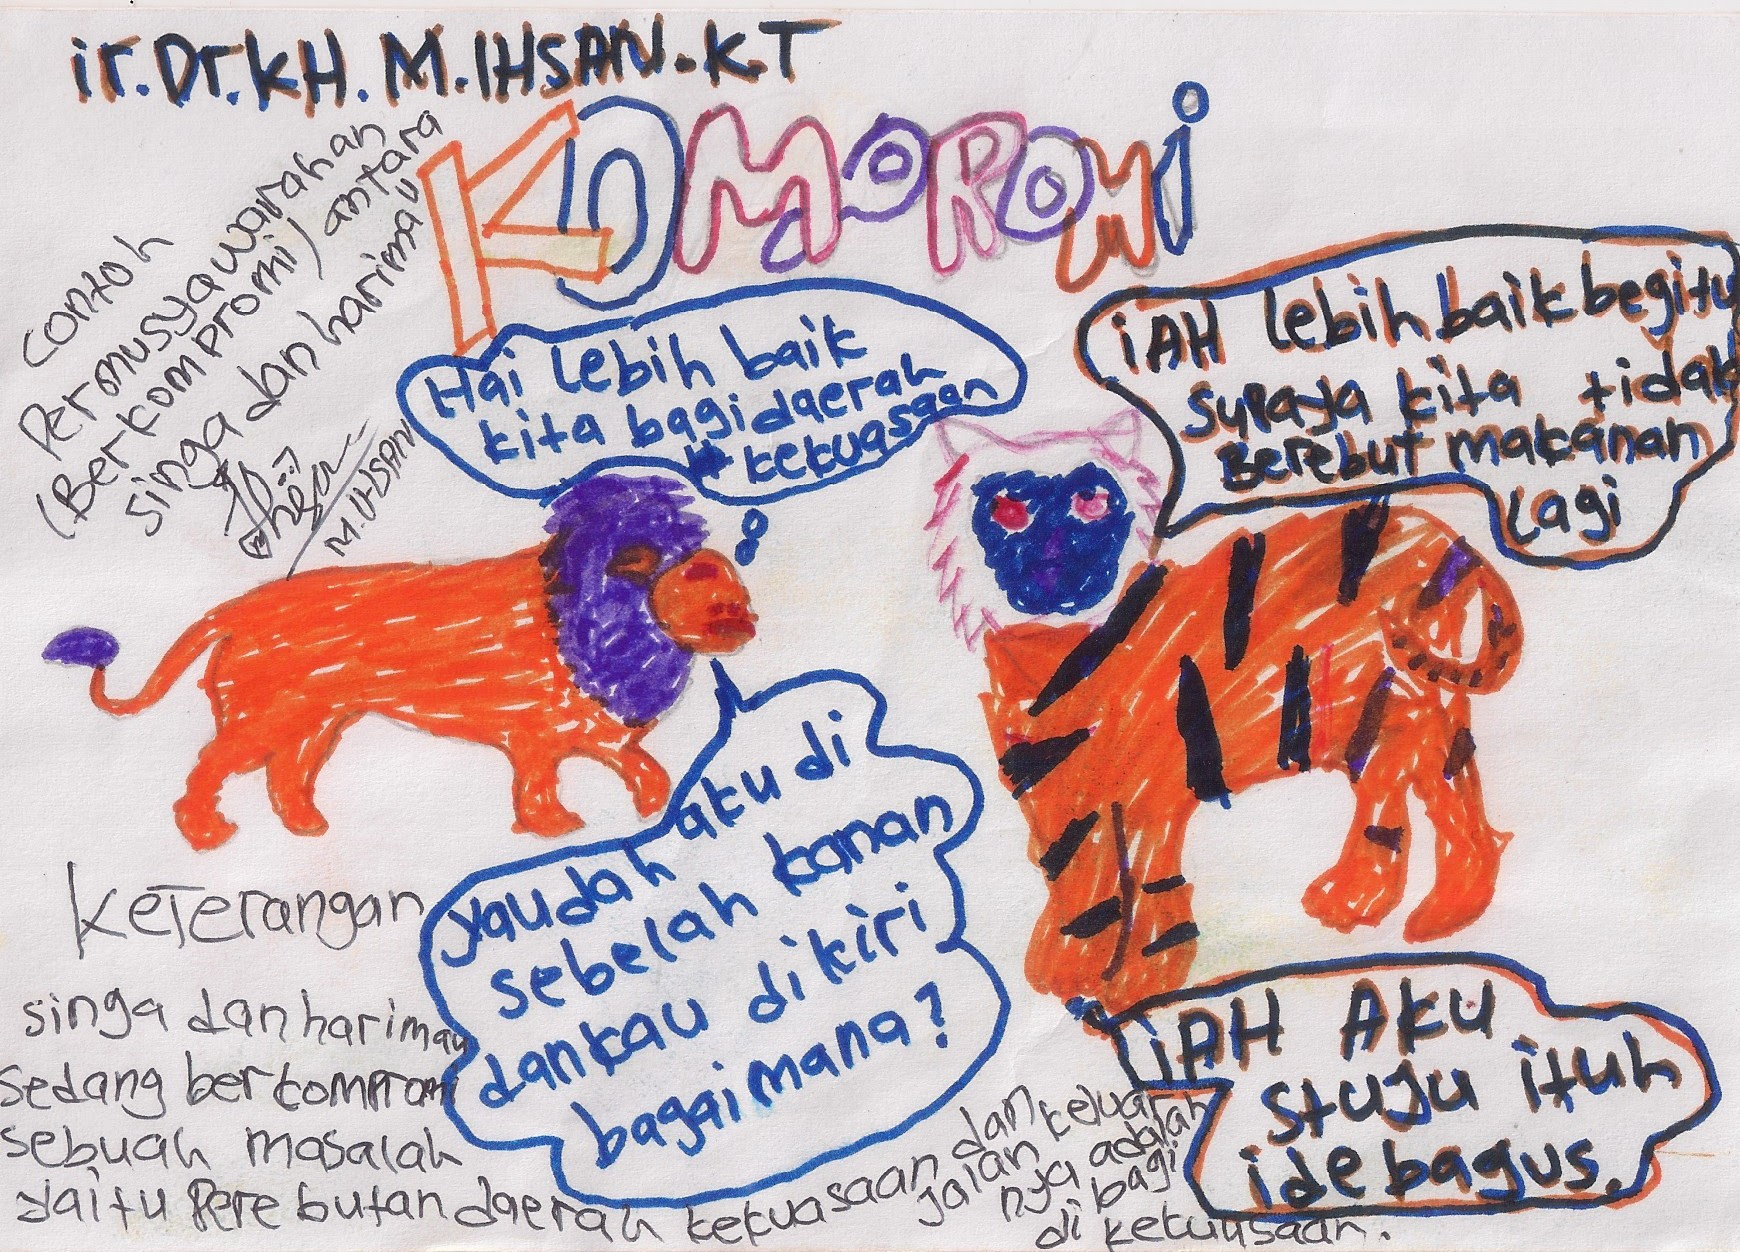 ir.Dr.KH.M.IHSAN.K.T
KOMPROMi
contoh
Permusyawarahan
(Berkompromi) antara
singa dan harimau
M.IHSAN
Hai lebih baik
kita bagi daerah
kekuasaan
iAH lebih baik begitu
supaya kita tidak
Berebut makanan
lagi
yaudah aku di
sebelah kanan
dan kau di kiri
bagaimana?
iAH AKU
stuju ituh
ide bagus.
Keterangan
singa dan harimau
sedang berkompromi
sebuah masalah
yaitu Perebutan daerah kekuasaan dan keluar
jalan nya adalah
di bagi
di kekuasaan.